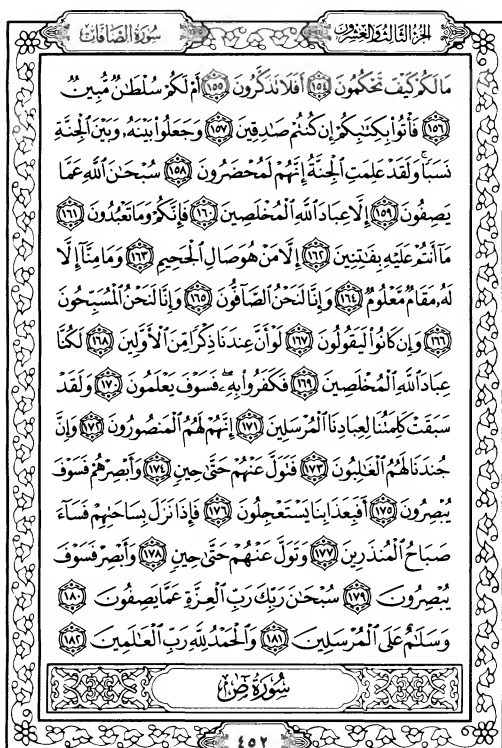 الجزء الثالث والعشرون سورة الصافات
مَا لَكُمْ كَيْفَ تَحْكُمُونَ ١٥٤ أَفَلَا تَذَكَّرُونَ ١٥٥ أَمْ لَكُمْ سُلْطَٰنٌ مُّبِينٌ
١٥٦ فَأْتُوا۟ بِكِتَٰبِكُمْ إِن كُنتُمْ صَٰدِقِينَ ١٥٧ وَجَعَلُوا۟ بَيْنَهُۥ وَبَيْنَ ٱلْجِنَّةِ
نَسَبًا ۚ وَلَقَدْ عَلِمَتِ ٱلْجِنَّةُ إِنَّهُمْ لَمُحْضَرُونَ ١٥٨ سُبْحَٰنَ ٱللَّهِ عَمَّا
يَصِفُونَ ١٥٩ إِلَّا عِبَادَ ٱللَّهِ ٱلْمُخْلَصِينَ ١٦٠ فَإِنَّكُمْ وَمَا تَعْبُدُونَ ١٦١
مَآ أَنتُمْ عَلَيْهِ بِفَٰتِنِينَ ١٦٢ إِلَّا مَنْ هُوَ صَالِ ٱلْجَحِيمِ ١٦٣ وَمَا مِنَّآ إِلَّا
لَهُۥ مَقَامٌ مَّعْلُومٌ ١٦٤ وَإِنَّا لَنَحْنُ ٱلصَّآفُّونَ ١٦٥ وَإِنَّا لَنَحْنُ ٱلْمُسَبِّحُونَ
١٦٦ وَإِن كَانُوا۟ لَيَقُولُونَ ١٦٧ لَوْ أَنَّ عِندَنَا ذِكْرًا مِّنَ ٱلْأَوَّلِينَ ١٦٨ لَكُنَّا
عِبَادَ ٱللَّهِ ٱلْمُخْلَصِينَ ١٦٩ فَكَفَرُوا۟ بِهِۦ ۖ فَسَوْفَ يَعْلَمُونَ ١٧٠ وَلَقَدْ
سَبَقَتْ كَلِمَتُنَا لِعِبَادِنَا ٱلْمُرْسَلِينَ ١٧١ إِنَّهُمْ لَهُمُ ٱلْمَنصُورُونَ ١٧٢ وَإِنَّ
جُندَنَا لَهُمُ ٱلْغَٰلِبُونَ ١٧٣ فَتَوَلَّ عَنْهُمْ حَتَّىٰ حِينٍ ١٧٤ وَأَبْصِرْهُمْ فَسَوْفَ
يُبْصِرُونَ ١٧٥ أَفَبِعَذَابِنَا يَسْتَعْجِلُونَ ١٧٦ فَإِذَا نَزَلَ بِسَاحَتِهِمْ فَسَآءَ
صَبَاحُ ٱلْمُنذَرِينَ ١٧٧ وَتَوَلَّ عَنْهُمْ حَتَّىٰ حِينٍ ١٧٨ وَأَبْصِرْ فَسَوْفَ
يُبْصِرُونَ ١٧٩ سُبْحَٰنَ رَبِّكَ رَبِّ ٱلْعِزَّةِ عَمَّا يَصِفُونَ ١٨٠
وَسَلَٰمٌ عَلَى ٱلْمُرْسَلِينَ ١٨١ وَٱلْحَمْدُ لِلَّهِ رَبِّ ٱلْعَٰلَمِينَ ١٨٢
سُورَةُ صٓ
٤٥٢